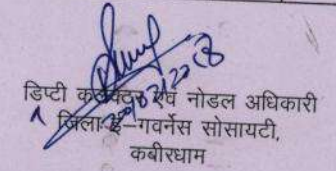 डिप्टी कलेक्टर एवं नोडल अधिकारी
जिला ई-गवर्नेस सोसायटी,
कबीरधाम